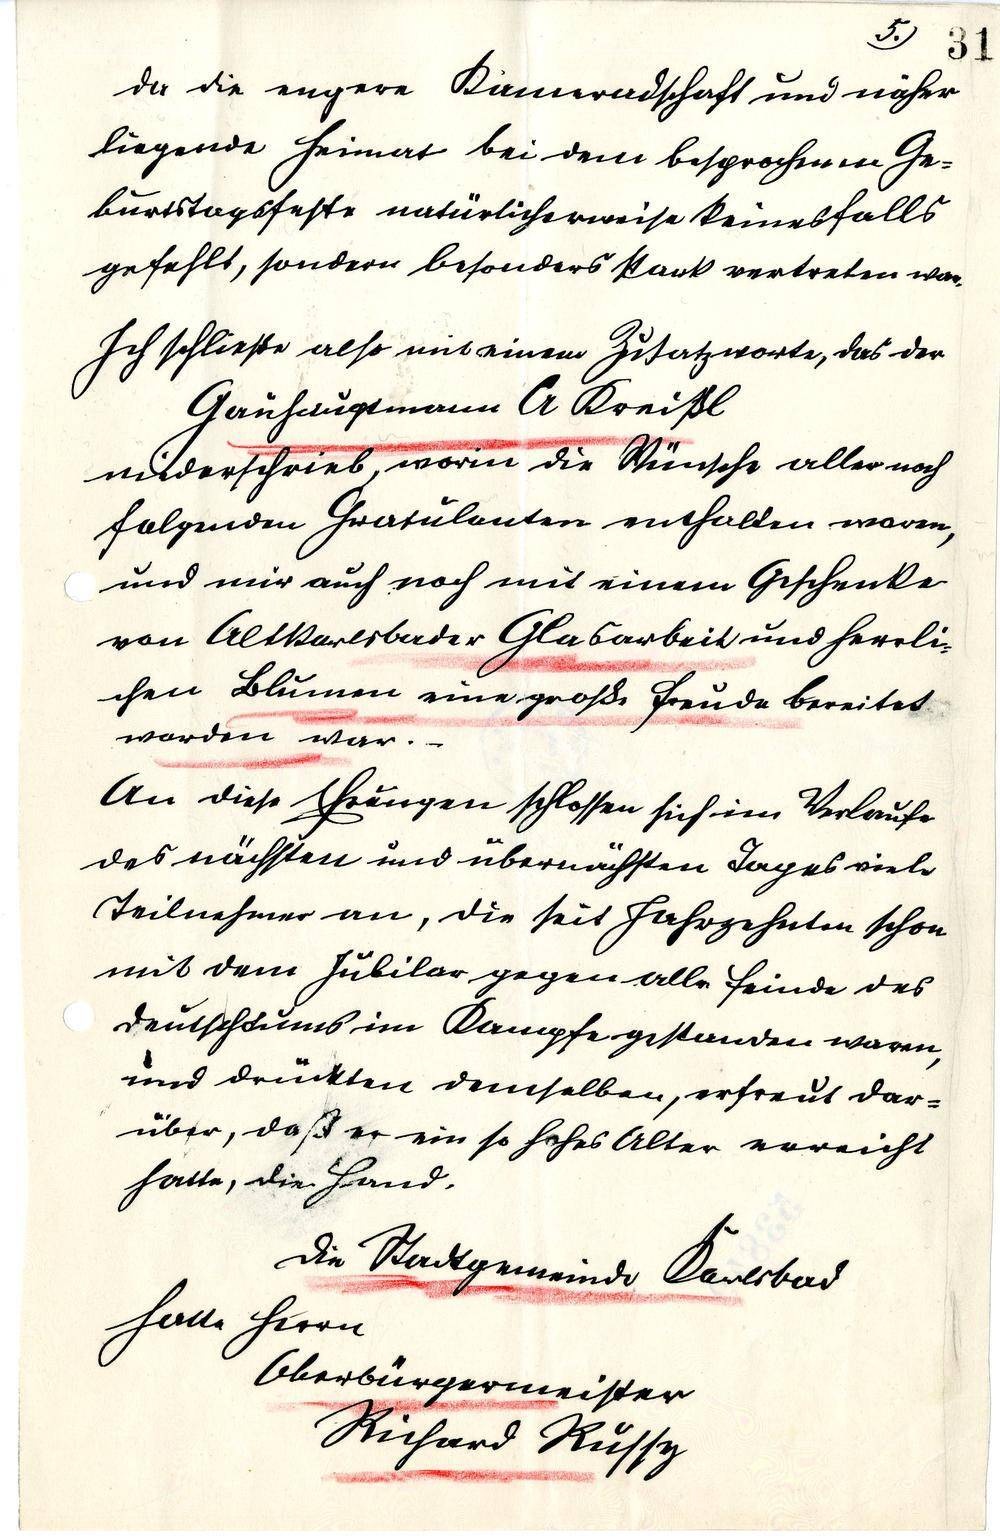 5.) 31
da die engere Kameradschaft und näher
liegende Heimat bei dem besprochenen Ge=
burtstagsfeste natürlicherweise keinesfalls
gefehlt, sondern besonders stark vertreten war.
Ich schließe also mit einem Zusatzworte, das der
Gauhauptmann A Kreißl
niederschrieb, worin die Wünsche aller noch
folgenden Gratulanten enthalten waren,
und mir auch noch mit einem Geschenke
von Altkarlsbader Glasarbeit und herrli=
chen Blumen eine große Freude bereitet
worden war. –
An diese Ehrungen schlossen sich im Verlaufe
des nächsten und übernächsten Tages viele
Teilnehmer an, die seit Jahrzehnten schon
mit dem Jubilar gegen alle Feinde des
Deutschtums im Kampfe gestanden waren,
und drückten demselben, erfreut dar=
über, daß er ein so hohes Alter erreicht
hatte, die Hand.
Die Stadtgemeinde Karlsbad
hatte Herrn
Oberbürgermeister
Richard Russy